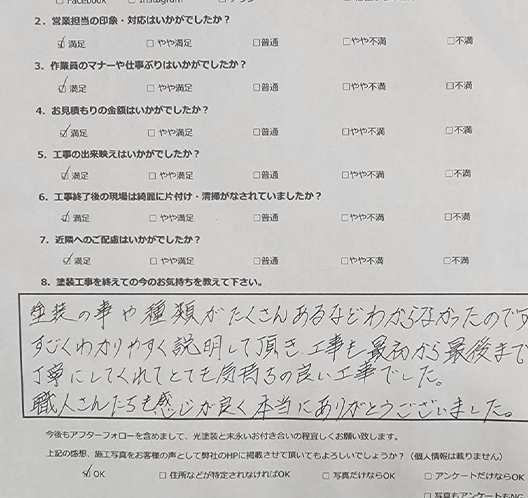 □ Facebook □ Instagram
2. 営業担当の印象・対応はいかがでしたか？
☑ 満足 □ やや満足 □普通 □やや不満 □不満
3. 作業員のマナーや仕事ぶりはいかがでしたか？
☑ 満足 □ やや満足 □普通 □やや不満 □不満
4. お見積もりの金額はいかがでしたか？
☑ 満足 □ やや満足 □普通 □やや不満 □不満
5. 工事の出来映えはいかがでしたか？
☑ 満足 □ やや満足 □普通 □やや不満 □不満
6. 工事終了後の現場は綺麗に片付け・清掃がなされていましたか？
☑ 満足 □ やや満足 □普通 □やや不満 □不満
7. 近隣へのご配慮はいかがでしたか？
☑ 満足 □ やや満足 □普通 □やや不満 □不満
8. 塗装工事を終えての今のお気持ちを教えて下さい。
塗装の事や種類がたくさんあるなどわからなかったので
すごくわかりやすく説明して頂き、工事も最初から最後まで
丁寧にしてくれてとても気持ちの良い工事でした。
職人さんたちも感じが良く本当にありがとうございました。
今後もアフターフォローを含めまして、光塗装と末永いお付き合いの程宜しくお願い致します。
上記の感想、施工写真をお客様の声として弊社のHPに掲載させて頂いてもよろしいでしょうか？（個人情報は載りません）
☑ OK □ 住所などが特定されなければOK □ 写真だけならOK □ アンケートだけならOK
□ 写真もアンケートもNG